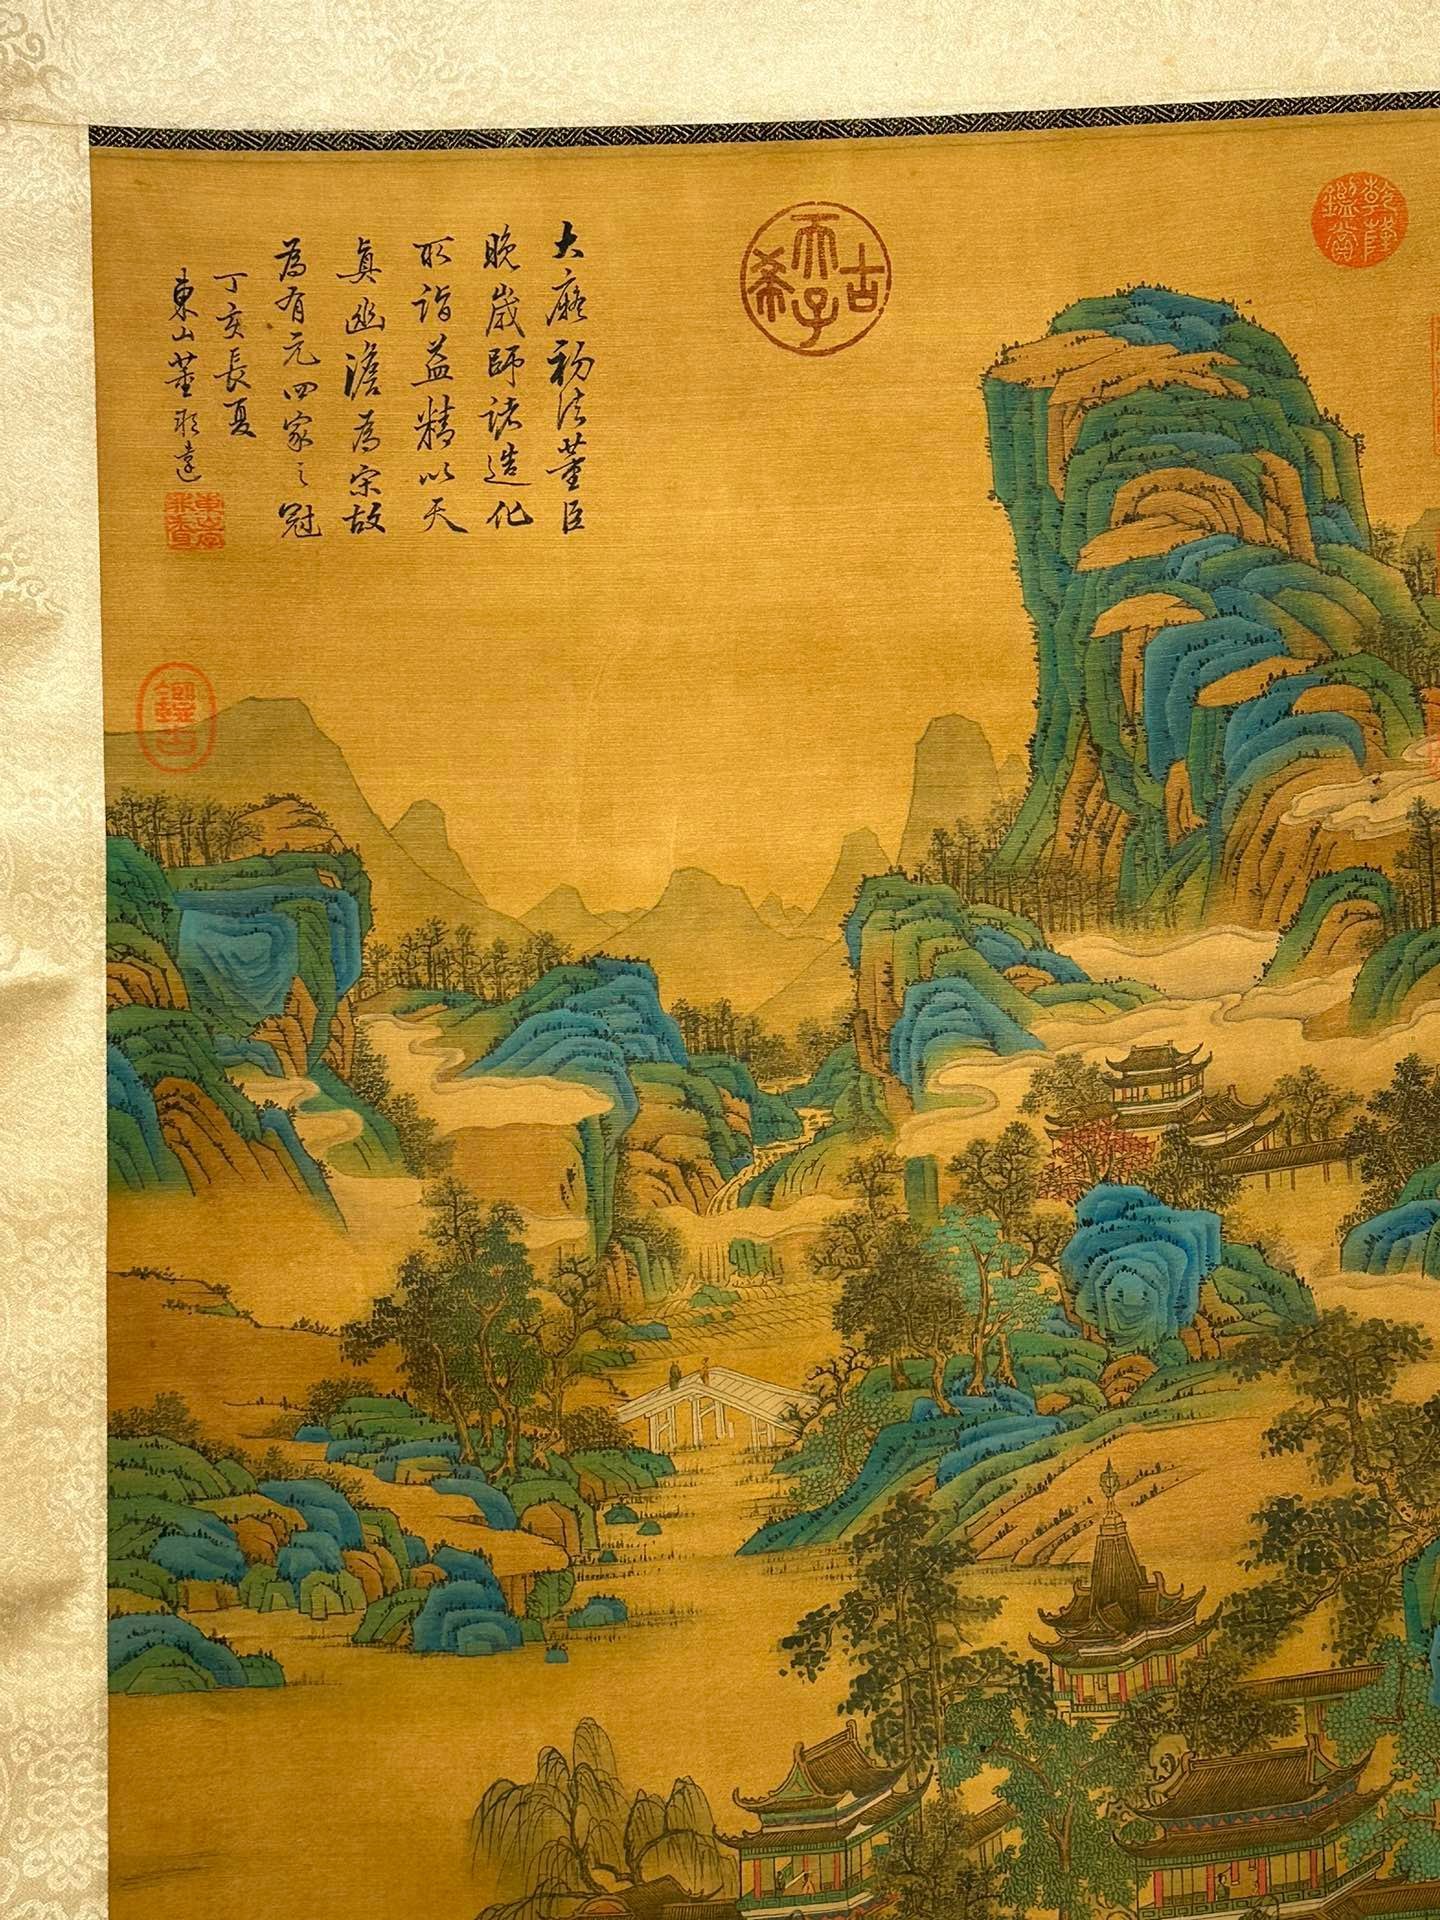 乾隆鑑賞
古希天子
大癡初法董巨
晚歲師諸造化
所詣益精以天
真幽澹為宗故
為有元四家之冠
丁亥長夏
東山董邦達